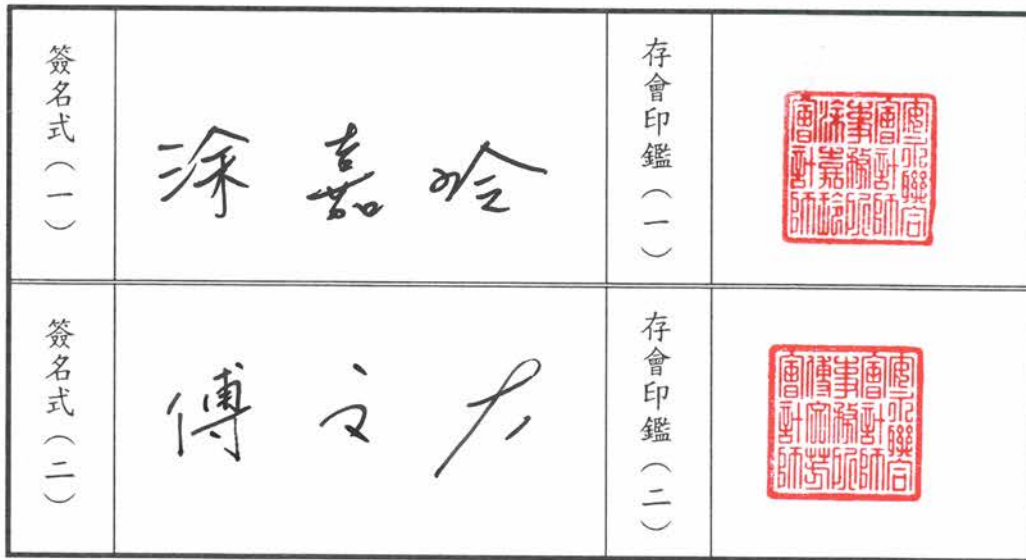 簽名式(一)
涂嘉玲
存會印鑑(一)
安永聯合
會計師
事務所
涂嘉玲
會計師
簽名式(二)
傅文
存會印鑑(二)
安永聯合
會計師
事務所
傅文芳
會計師